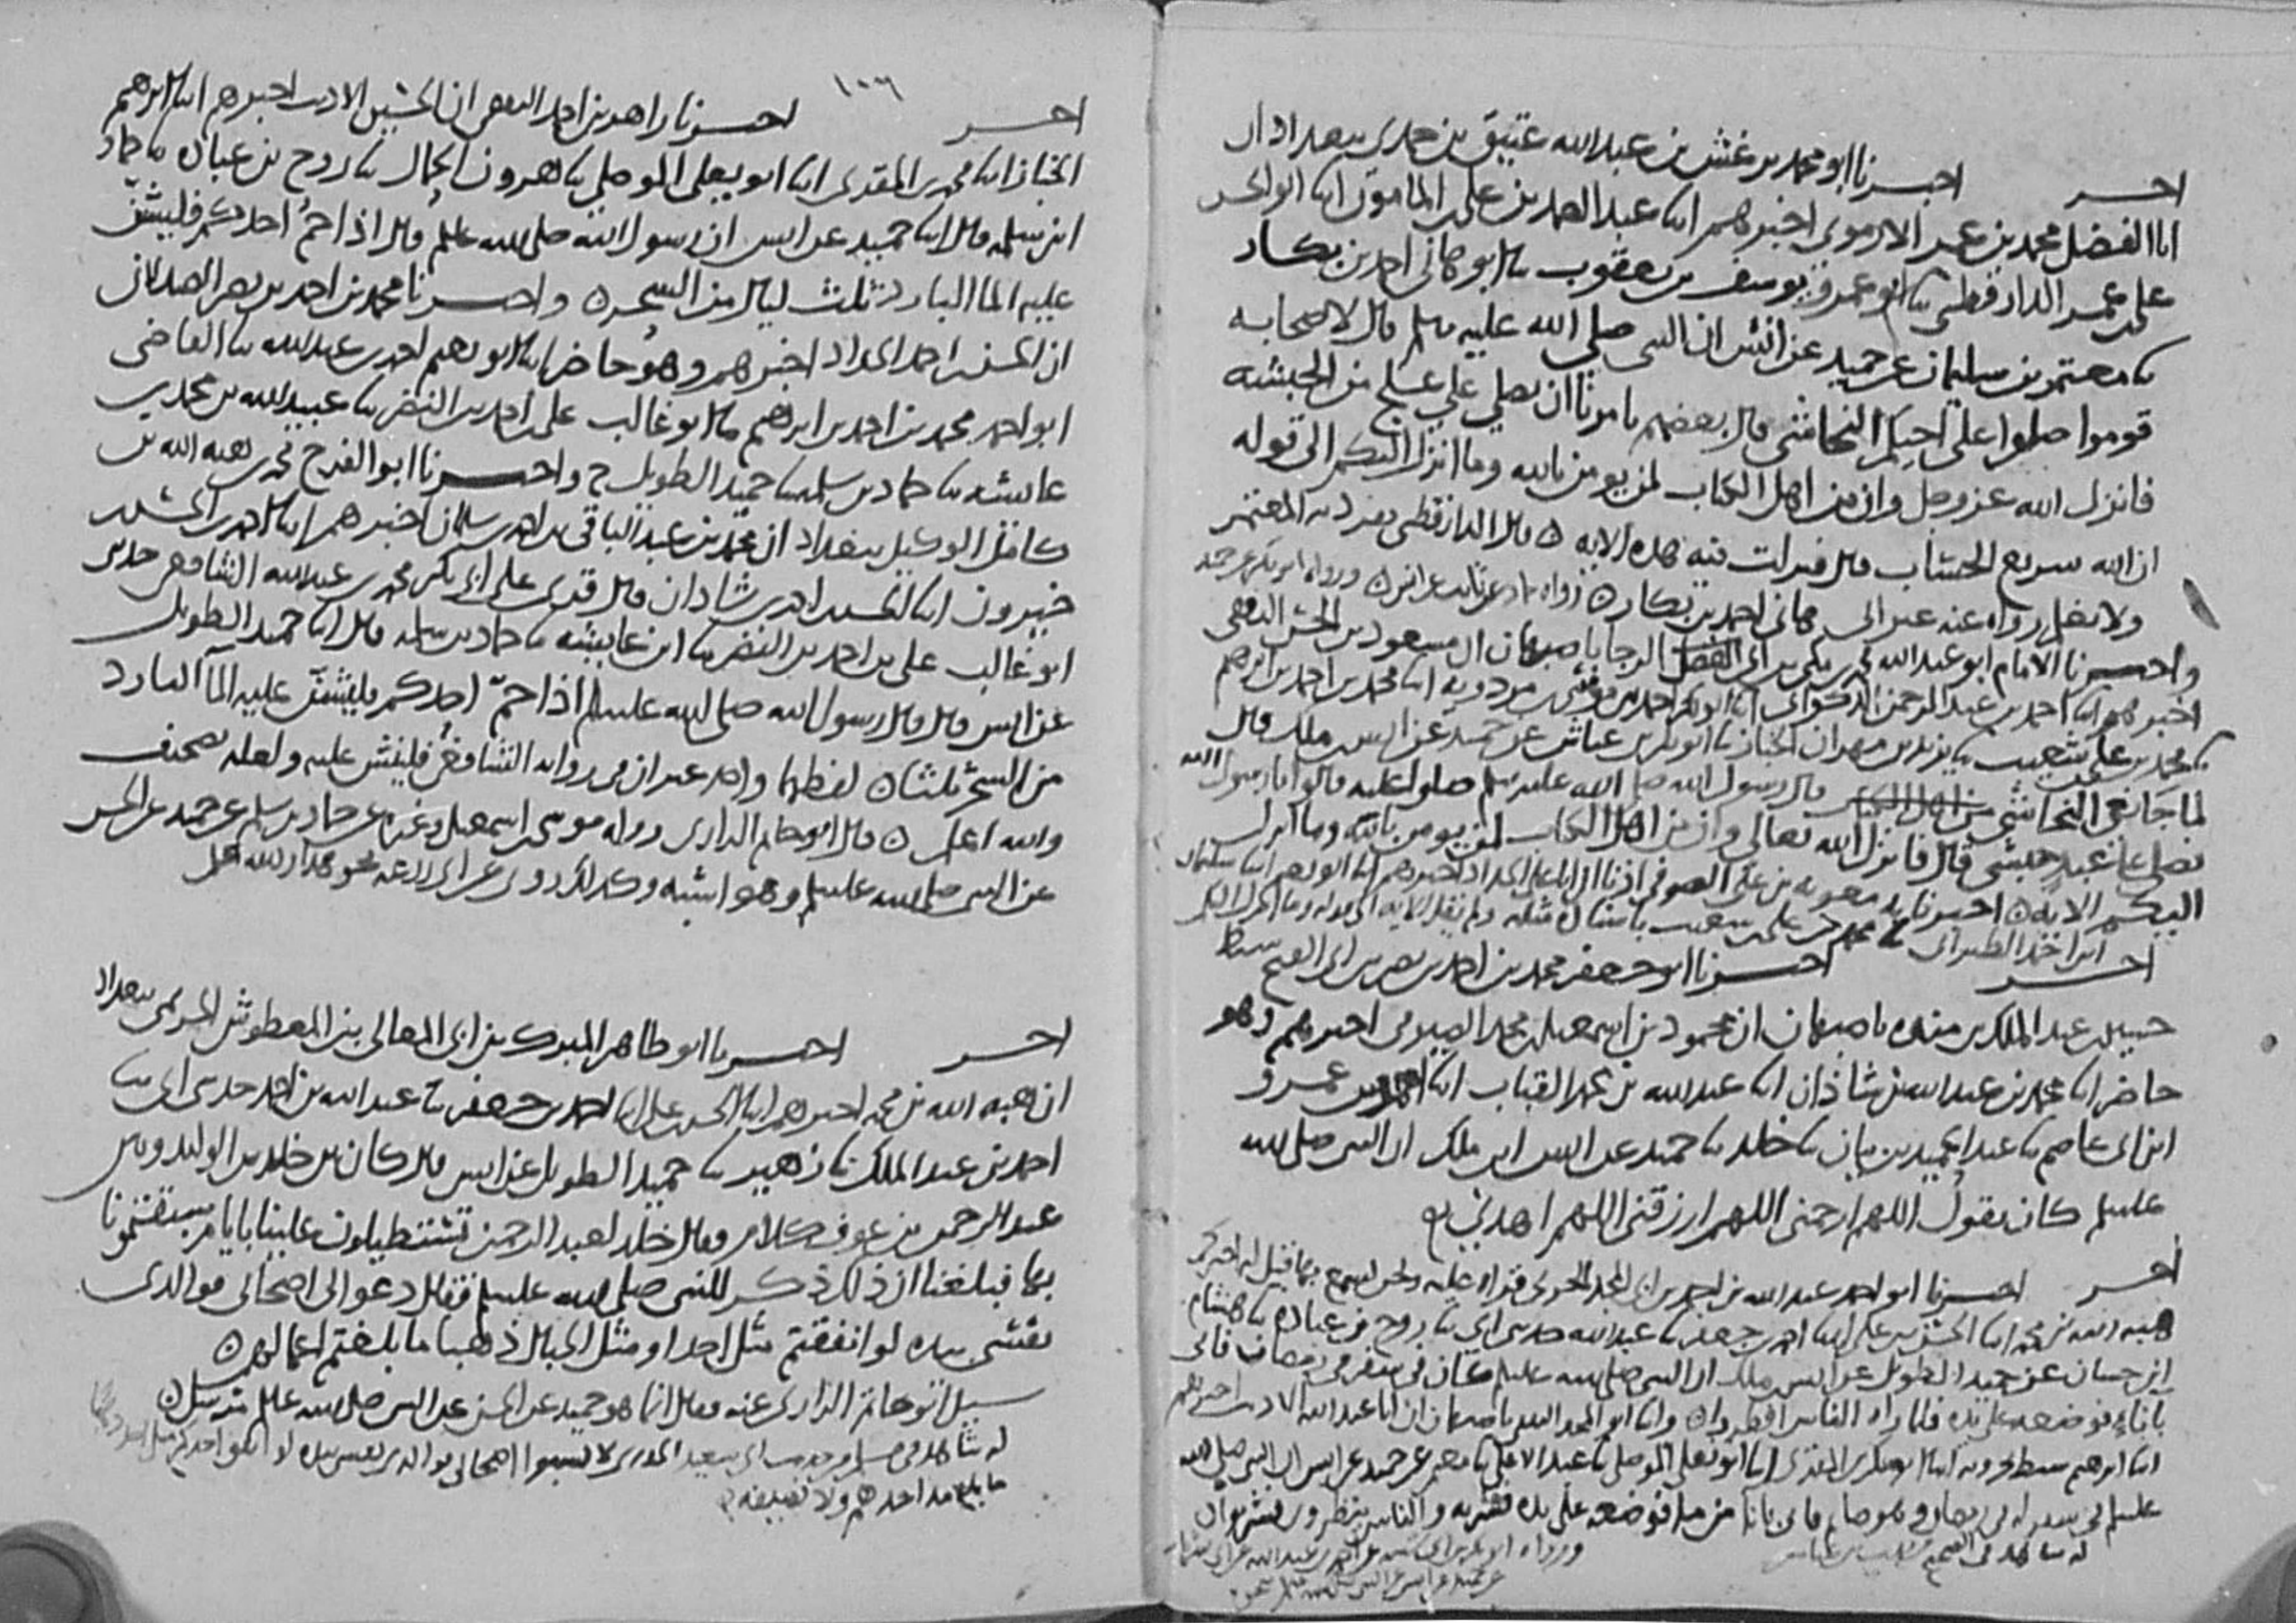 آخر اخبرنا ابو محمد بن غنش بن عبد الله عتيق بن حمدي ببغداد ان
ابا الفضل محمد بن عمر الارموي اخبرهم ابنا عبد الصمد بن علي المامون ابنا ابو الحسن
علي بن عمر الدارقطني ثنا ابو عمرو يوسف بن يعقوب ثنا ابو هاني احمد بن بكار
ثنا معتمر بن سليمان عن حميد عن انس ان النبي صلى الله عليه وسلم قال لاصحابه
قوموا صلوا على اخيكم النجاشي قال بعضهم يامرنا ان نصلي على علج من الحبشة
فانزل الله عز وجل وان من اهل الكتاب لمن يومن بالله وما انزل اليكم الى قوله
ان الله سريع الحساب قال فنزلت فيه هذه الاية ٥ قال الدارقطني تفرد به المعتمر
ولا نعلم رواه عنه غير ابي هاني احمد بن بكار ٥ رواه حماد عن ثابت عن انس ٥ ورواه ابو بكر عن حميد
واخبرنا الامام ابو عبد الله محمد بن مكي بن ابي الرجا باصبهان ان مسعود بن الحسن الثقفي
اخبرهم ابنا احمد بن عبد الرحمن الذكواني ابنا ابو بكر احمد بن موسى بن مردويه ابنا محمد بن احمد بن ابرهيم
ثنا محمد بن علي بن شعيب ثنا يزيد بن مهران الخباز ثنا ابو بكر بن عياش عن حميد عن انس بن ملك قال
لما جا نعي النجاشي قال رسول الله صلى الله عليه وسلم صلوا عليه قالوا يا رسول الله
نصلي على عبد حبشي قال فانزل الله تعالى وان من اهل الكتاب لمن يومن بالله وما انزل
اليكم الاية ٥ اخبرنا معوية بن علي الصوفي اذنا ان ابا علي الحداد اخبرهم ابنا ابو نعيم ابنا سليمان
ابن احمد الطبراني ثنا محمد بن علي بن شعيب باسناده مثله
آخر اخبرنا ابو جعفر محمد بن احمد بن نصر بن ابي الفتح سبط
حسين بن عبد الملك بن منده باصبهان ان محمود بن اسمعيل بن محمد الصيرفي اخبرهم وهو
حاضر ابنا محمد بن عبد الله بن شاذان ابنا عبد الله بن محمد القباب ابنا احمد بن عمرو
ابن ابي عاصم ثنا عبد الحميد بن بيان ثنا خالد ثنا حميد عن انس ابن ملك ان النبي صلى الله
عليه وسلم كان يقول اللهم ارحمني اللهم ارزقني اللهم اهدني ٥
آخر اخبرنا ابو احمد عبد الله بن احمد بن ابي المجد الحربي قراة عليه ونحن نسمع بها قيل له اخبركم
هبة الله بن محمد ابنا الحسن بن علي ابنا احمد بن جعفر ثنا عبد الله حدثني ابي ثنا روح بن عبادة ثنا هشام
ابن حسان عن حميد الطويل عن انس بن ملك ان النبي صلى الله عليه وسلم كان في سفر في رمضان فاتي
باناء فوضعه على يده فلما راه الناس افطروا ٥ وانا ابو المجد باصبهان ان ابا عبد الله الاديب اخبرهم
ابنا ابرهيم سبط بحرويه ابنا ابو بكر بن المقري ابنا ابو يعلى الموصلي ثنا عبد الاعلى ثنا معتمر عن حميد عن انس ان النبي صلى الله
عليه وسلم كان في سفر له في رمضان وهو صايم فاتي باناء من ماء فوضعه على يده فشربه والناس ينظرون
له شاهد في الصحيح من حديث ابن عباس
١٠٦
آخر اخبرنا زاهد بن احمد الثقفي ان الحسين الاديب اخبرهم ابنا ابرهيم
الخباز ابنا محمد بن المقري ابنا ابو يعلى الموصلي ثنا هرون الحمال ثنا روح بن عبادة ثنا حماد
ابن سلمة قال ابنا حميد عن انس ان رسول الله صلى الله عليه وسلم قال اذا حم احدكم فليشن
عليه الما البارد ثلث ليال من السحر ٥ واخبرنا محمد بن احمد بن نصر الصيدلاني
ان الحسن بن احمد الحداد اخبرهم وهو حاضر ابنا ابو نعيم احمد بن عبد الله ثنا القاضي
ابو احمد محمد بن احمد بن ابرهيم ثنا ابو غالب علي بن احمد بن النضر ثنا عبيد الله بن محمد بن
عايشة ثنا حماد بن سلمة ثنا حميد الطويل ح واخبرنا ابو الفرج محمد بن هبة الله بن
كامل الوكيل ببغداد ان محمد بن عبد الباقي بن احمد بن سلمان اخبرهم ابنا احمد بن الحسن بن
خيرون ابنا الحسن بن احمد بن شاذان قال قري على ابي بكر محمد بن عبد الله الشافعي حدثني
ابو غالب علي بن احمد بن النضر ثنا ابن عايشة ثنا حماد بن سلمة قال ابنا حميد الطويل
عن انس قال قال رسول الله صلى الله عليه وسلم اذا حم احدكم فليشن عليه الما البارد
من السحر ثلثا ٥ لفظهما واحد غير ان في رواية الشافعي فليشن عليه ولعله تصحيف
والله اعلم ٥ قال ابو حاتم الرازي رواه موسى بن اسمعيل وغيره عن حماد بن سلمة عن حميد عن الحسن
عن النبي صلى الله عليه وسلم وهو اشبه وكذلك روي عن ابي زرعة نحو هذا والله اعلم
آخر اخبرنا ابو طاهر المبارك بن ابي المعالي بن المعطوش الحريمي ببغداد
ان هبة الله بن محمد اخبرهم ابنا الحسن بن علي ابنا احمد بن جعفر ثنا عبد الله بن احمد حدثني ابي ثنا
احمد بن عبد الملك ثنا زهير ثنا حميد الطويل عن انس قال كان بين خالد بن الوليد وبين
عبد الرحمن بن عوف كلام فقال خالد لعبد الرحمن تستطيلون علينا بايام سبقتمونا
بها فبلغنا ان ذلك ذكر للنبي صلى الله عليه وسلم فقال دعوا لي اصحابي فوالذي
نفسي بيده لو انفقتم مثل احد او مثل الجبال ذهبا ما بلغتم اعمالهم ٥
سئل ابو حاتم الرازي عنه فقال انما هو حميد عن الحسن عن النبي صلى الله عليه وسلم مرسل ٥
له شاهد في مسلم من حديث ابي سعيد الخدري لا تسبوا اصحابي فوالذي نفسي بيده لو انفق احدكم مثل احد ذهبا
ما بلغ مد احدهم ولا نصيفه ٥